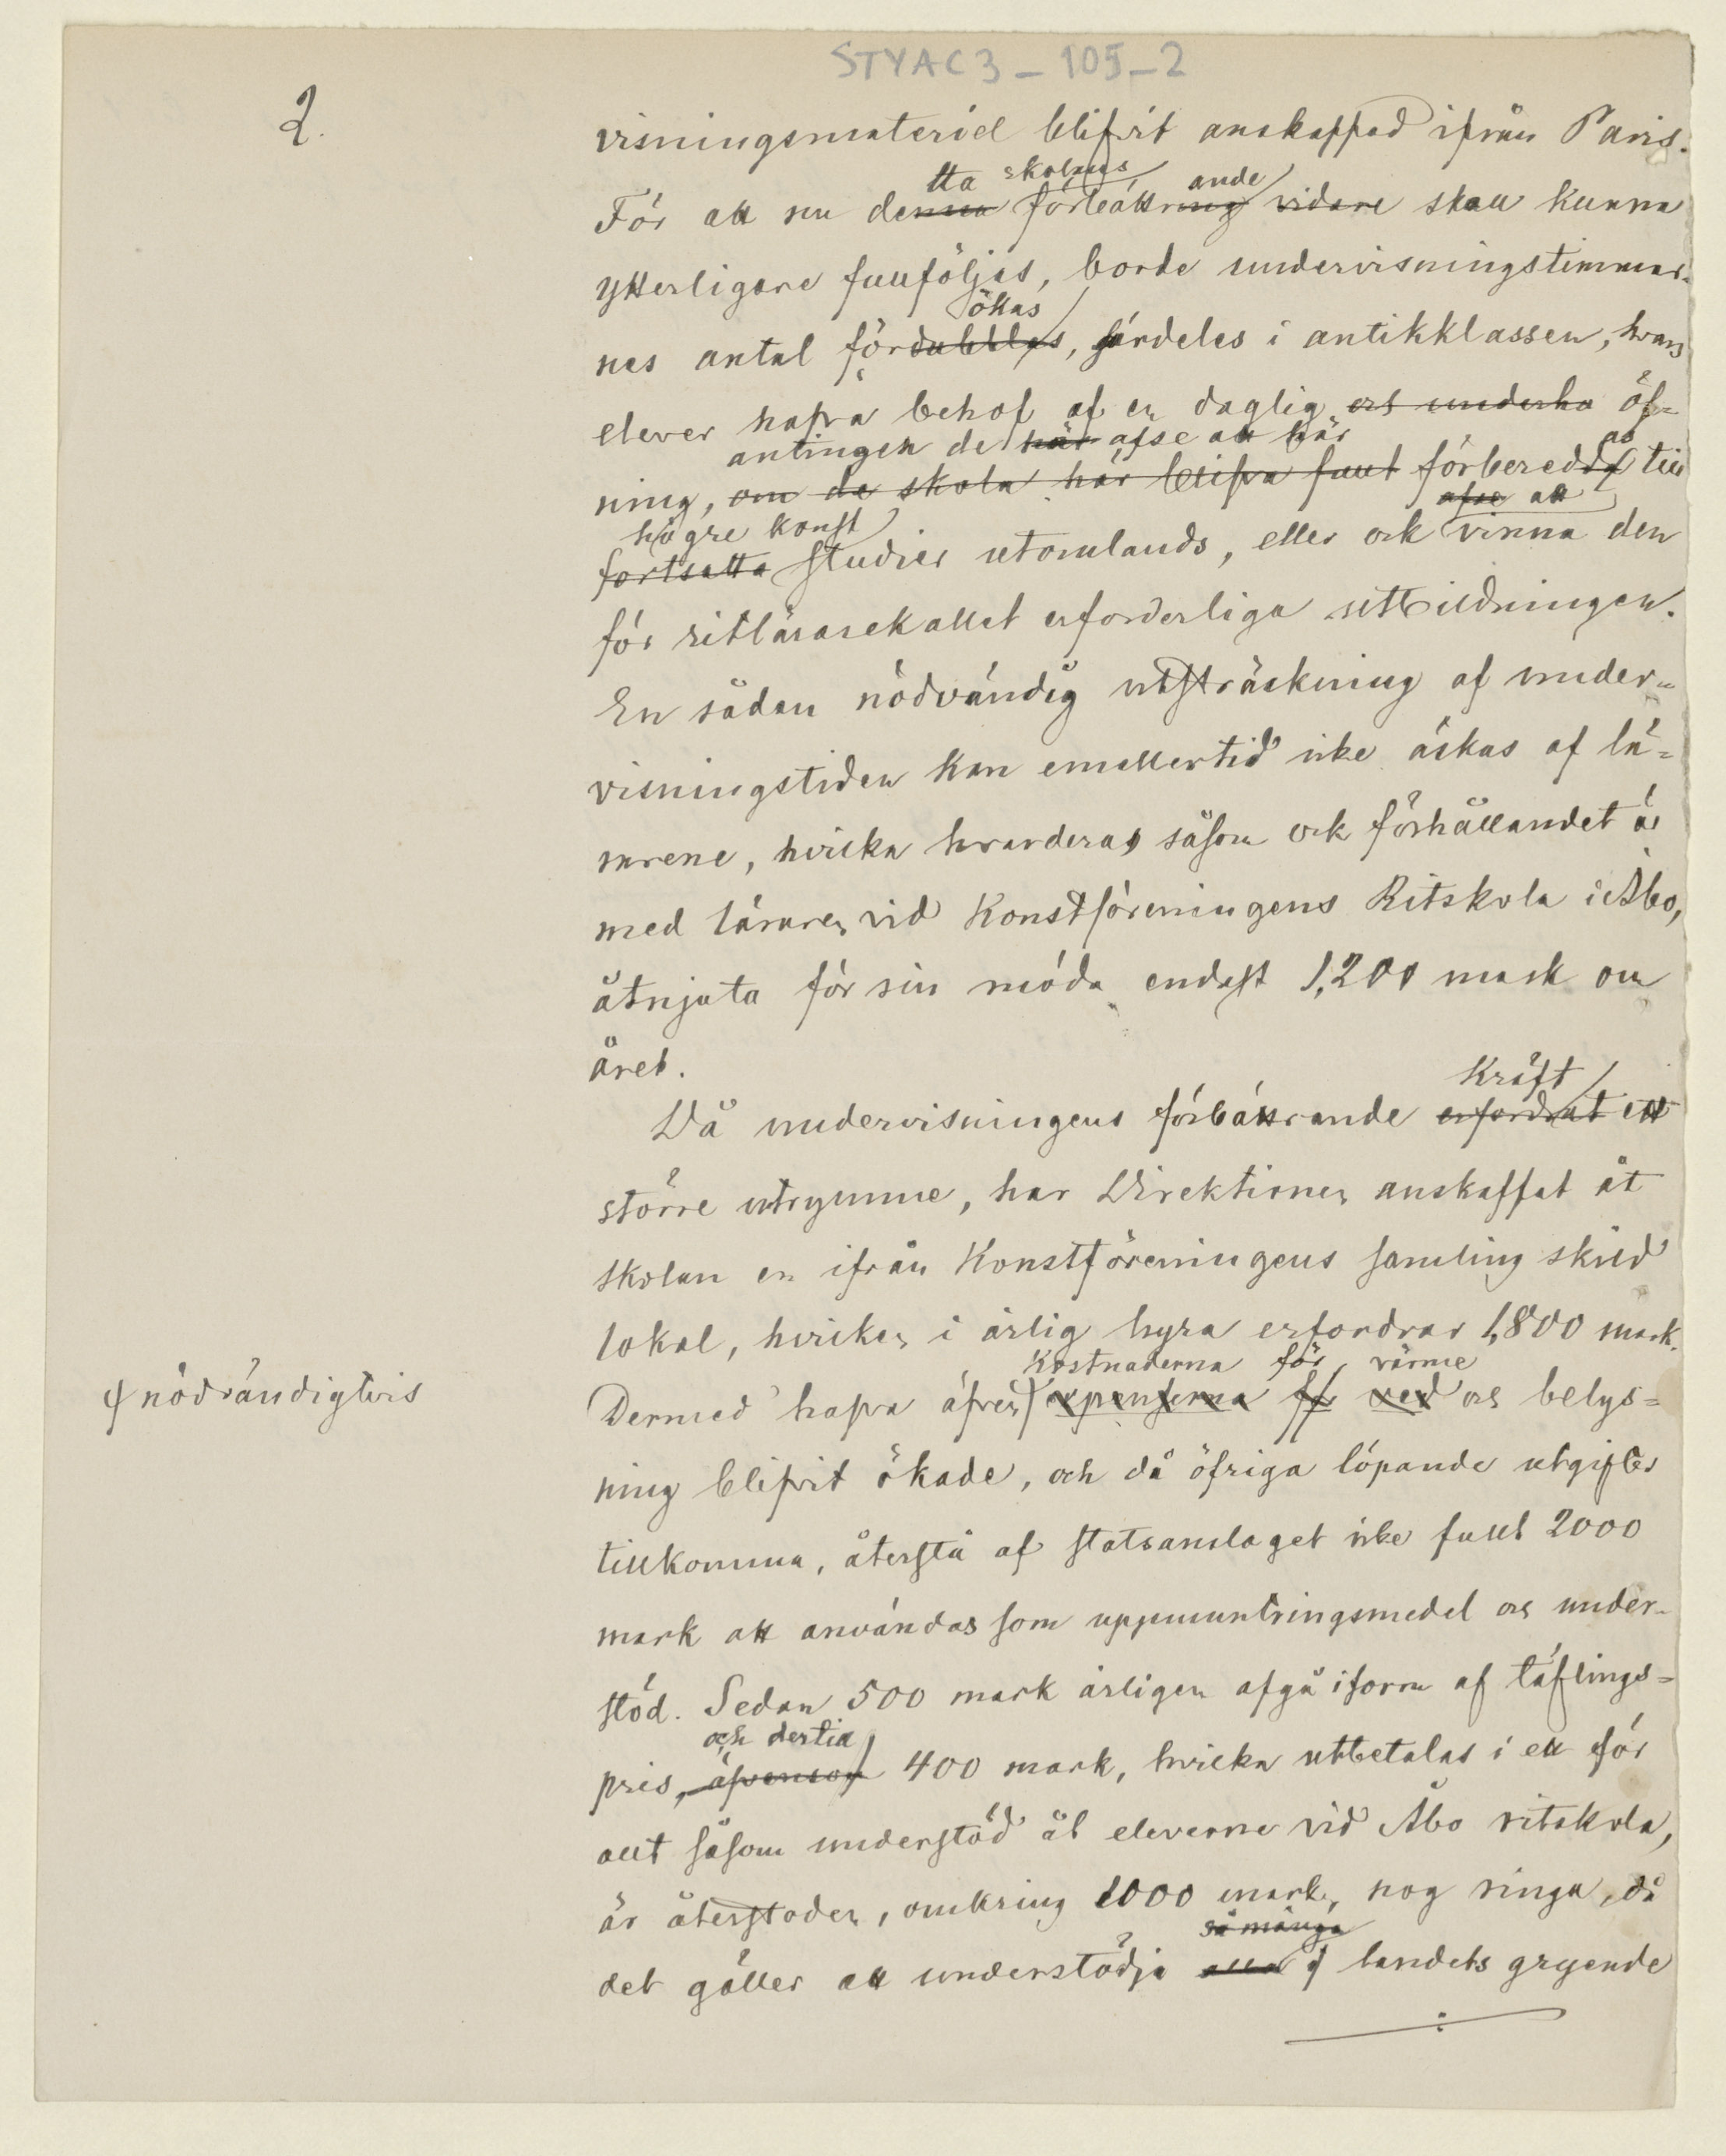 STYAC3-105-2
2.
visningsmateriel blifvit anskaffad ifrån Paris.
tta skolans ande
För att nu denna förbättrning vidare skall kunna
ytterligare fullföljas, borde undervisningstimmar-
ökas
nes antal fördubblas, särdeles i antikklassen, hvars
elever hafva behof af en daglig ext underha öf-
antingen de här afse att här as
ning, om de skola här blifva fullt förberedda till
högre konst afse att
fortsatta studier utomlands, eller ock vinna den
för ritlärarekallet erforderliga utbildningen.
En sådan nödvändig utsträckning af under-
visningstiden kan emellertid icke äskas af lä-
rarene, hvilka hvardera, såsom ock förhållandet är
med läraren vid Konstföreningens Ritskola i Åbo,
åtnjuta för sin möda endast 1,200 mark om
året.
kräft
Då undervisningens förbättrande erfordrat ett
större utrymme, har Direktionen anskaffat åt
skolan en ifrån Konstföreningens samling skild
lokal, hvilken i årlig hyra erfordrar 1,800 mark.
kostnaderna för värme
nödvändigtvis
Dermed hafva äfven expenserna för ved och belys-
ning blifvit ökade, och då öfriga löpande utgifter
tillkomma, återstå af statsanslaget icke fullt 2000
mark att användas som uppmuntringsmedel och under-
stöd. Sedan 500 mark årligen afgå i form af täflings-
och dertill
pris, äfvensom 400 mark, hvilka utbetalas i ett för
allt såsom understöd åt eleverne vid Åbo ritskola,
är återstoden, omkring 1000 mark, nog ringa, då
så många
det gäller att understödja alla af landets gryende